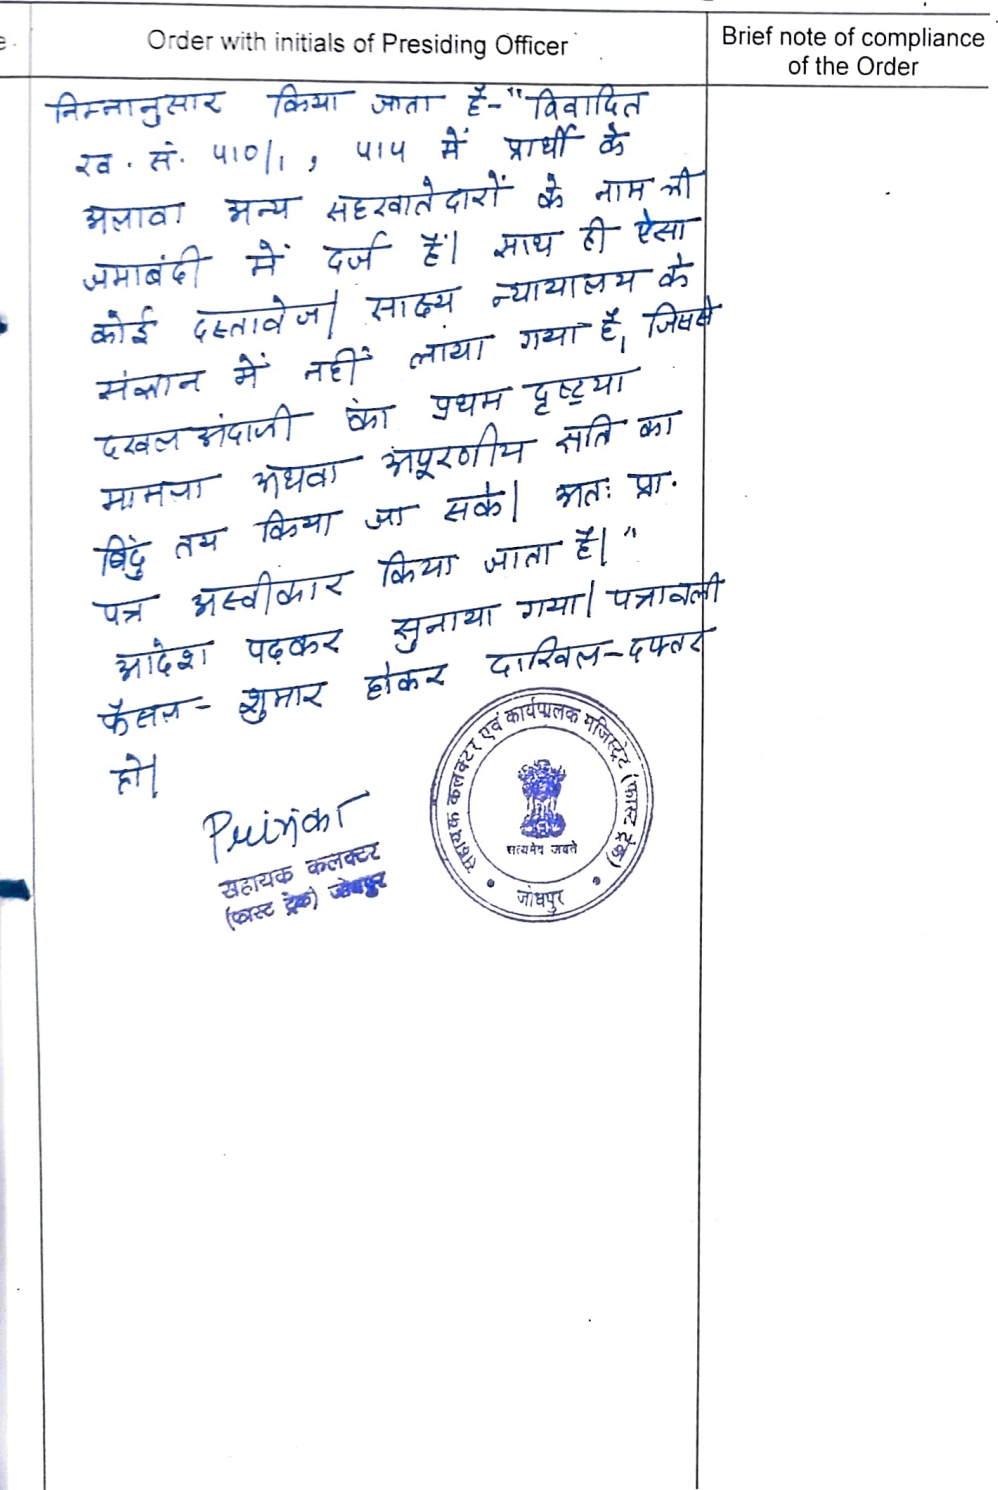 Order with initials of Presiding Officer
Brief note of compliance
of the Order
निम्नानुसार किया जाता है- "विवादित
ख. सं. 410/1, 414 में प्रार्थी के
अलावा अन्य सहखातेदारों के नाम भी
जमाबंदी में दर्ज हैं। साथ ही ऐसा
कोई दस्तावेज/ साक्ष्य न्यायालय के
संज्ञान में नहीं लाया गया है, जिससे
दखलअंदाजी का प्रथम दृष्टया
मामला अथवा अपूरणीय क्षति का
बिंदु तय किया जा सके। अतः प्रा.
पत्र अस्वीकार किया जाता है।"
आदेश पढ़कर सुनाया गया। पत्रावली
फैसल-शुमार होकर दाखिल-दफ्तर
हो।
सहायक कलक्टर
(फास्ट ट्रेक) जोधपुर
सहायक कलक्टर एवं कार्यपालक मजिस्ट्रेट (फास्ट ट्रेक)
सत्यमेव जयते
जोधपुर